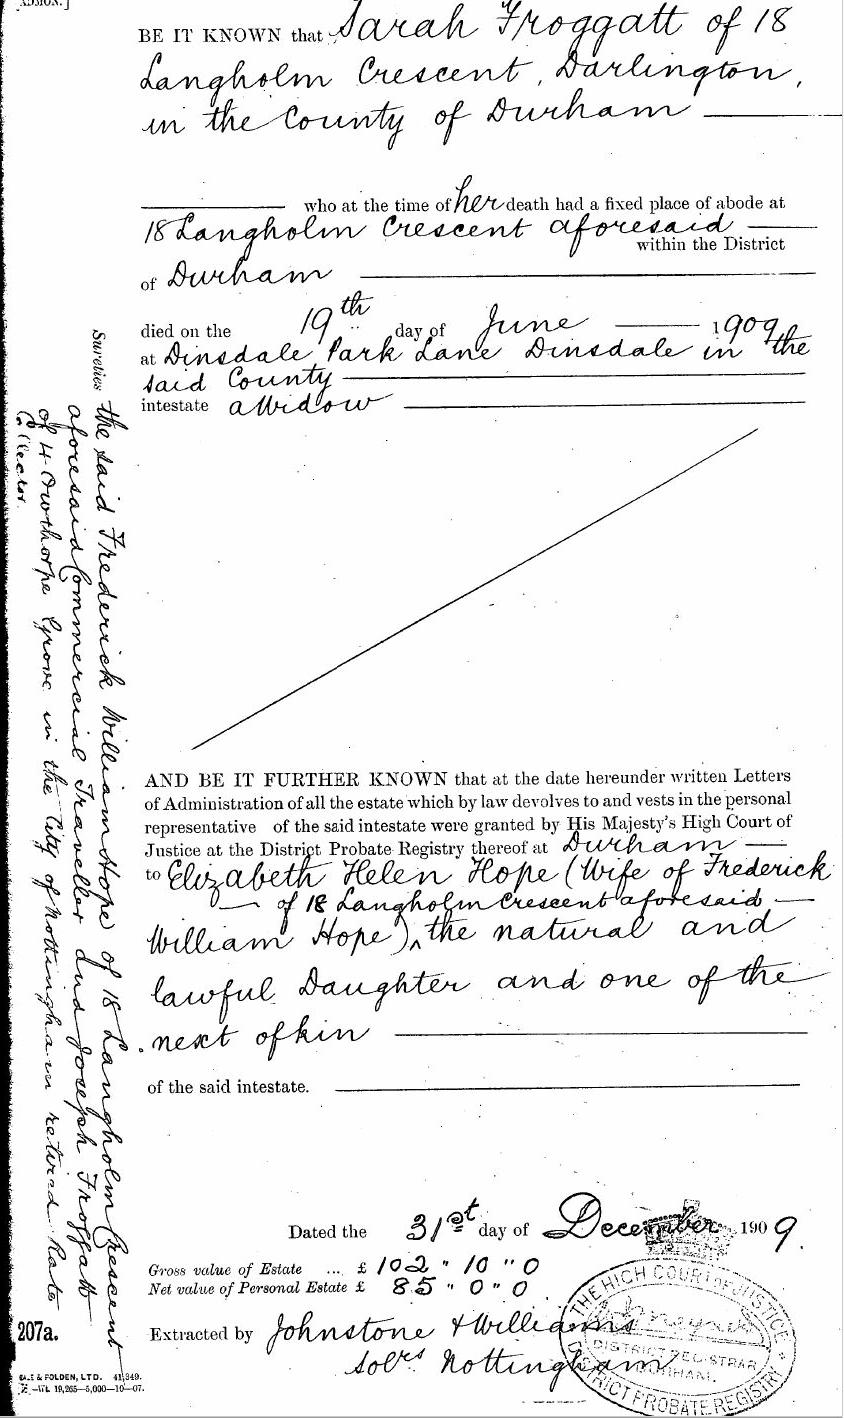 BE IT KNOWN that Sarah Froggatt of 18
Langholm Crescent, Darlington,
in the County of Durham
who at the time of her death had a fixed place of abode at
18 Langholm Crescent aforesaid
within the District
of Durham
died on the 19th day of June 1909
at Dinsdale Park Lane Dinsdale in the
said County
intestate a Widow
AND BE IT FURTHER KNOWN that at the date hereunder written Letters
of Administration of all the estate which by law devolves to and vests in the personal
representative of the said intestate were granted by His Majesty's High Court of
Justice at the District Probate Registry thereof at Durham
to Elizabeth Helen Hope (Wife of Frederick
of 18 Langholm Crescent aforesaid
William Hope) ^ the natural and
lawful Daughter and one of the
next of kin
of the said intestate.
Dated the 31st day of December 1909.
Gross value of Estate ... £ 102 " 10 " 0
Net value of Personal Estate £ 85 " 0 " 0
Extracted by Johnstone & Williams
Solrs Nottingham
THE HIGH COURT OF JUSTICE
DISTRICT REGISTRAR
DURHAM.
DISTRICT PROBATE REGISTRY
Sureties the said Frederick William Hope of 18 Langholm Crescent
aforesaid Commercial Traveller and Joseph Froggatt
of 4 Owthorpe Grove in the City of Nottingham retired Rate
Collector.
207a.
& FOLDEN, LTD. 41,349.
19,265—5,000—10—07.